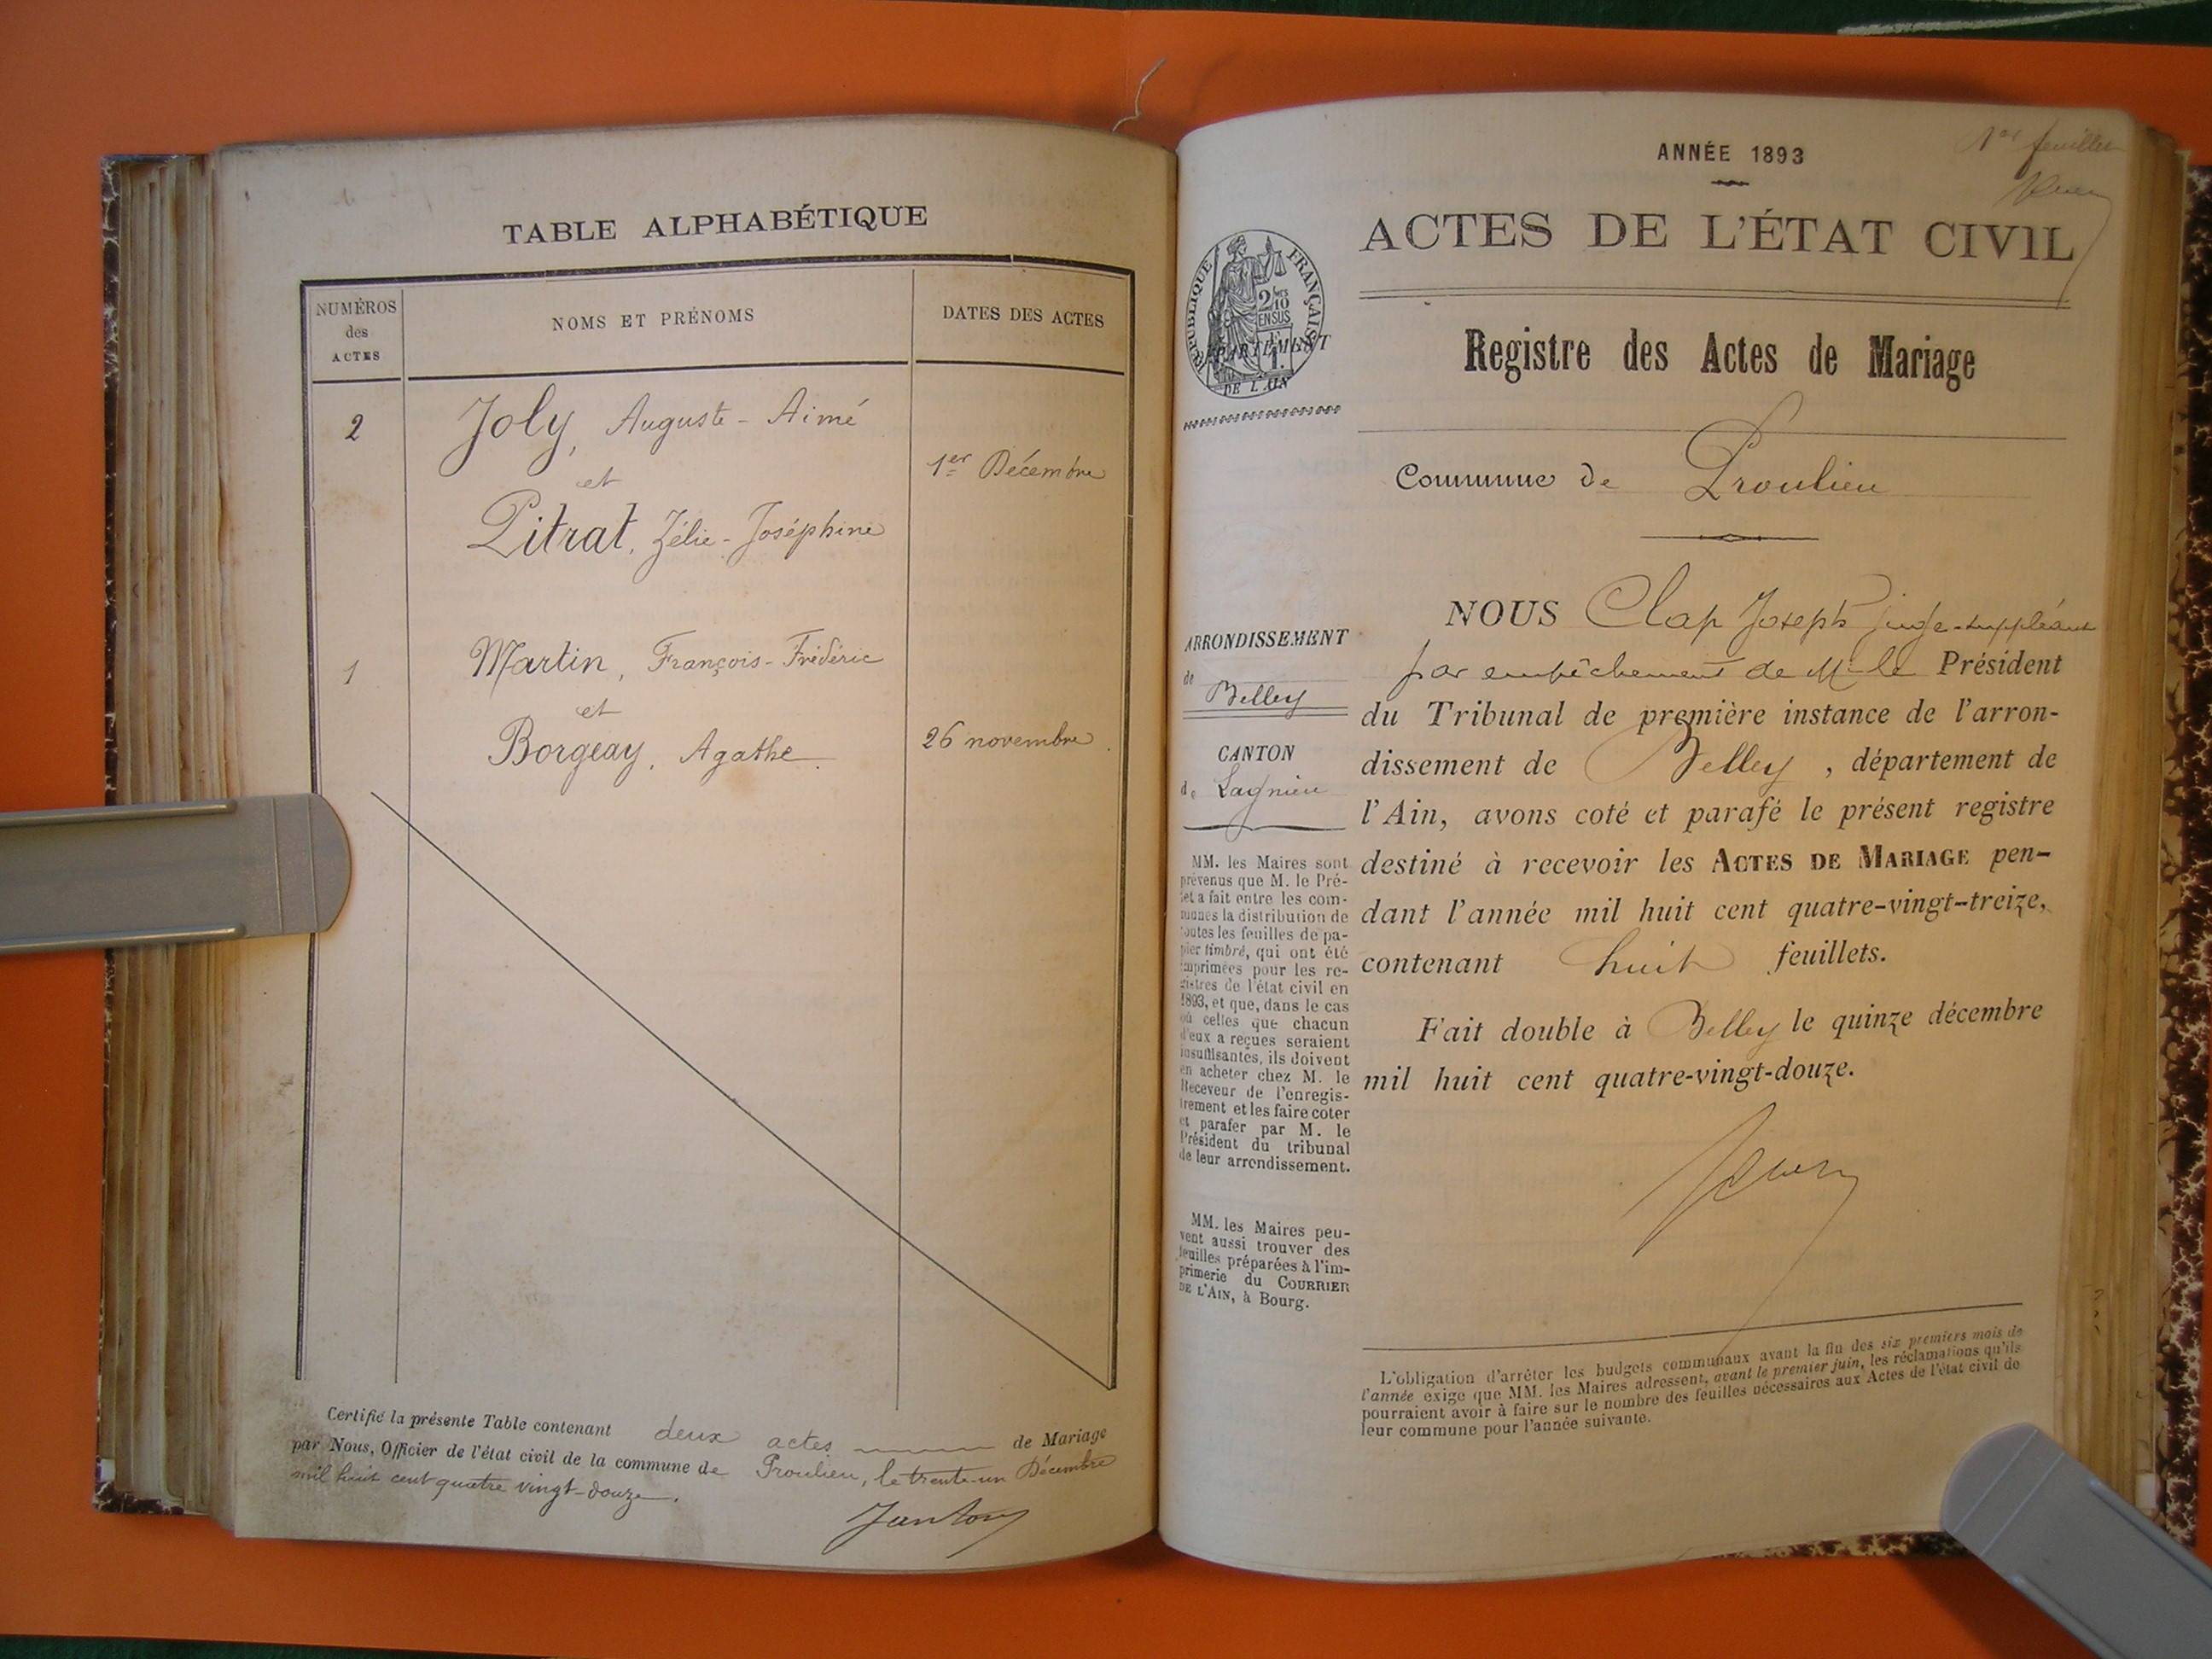 TABLE ALPHABÉTIQUE
NUMÉROS
des
ACTES
NOMS ET PRÉNOMS
DATES DES ACTES
2
Joly, Auguste-Aimé
et
1er Décembre
Pitrat, Zélie-Joséphine
1
Martin, François-Frédéric
et
Borgeay, Agathe.
26 novembre.
Certifié la présente Table contenant deux actes de Mariage
par Nous, Officier de l'état civil de la commune de Proulieu, le trente-un Décembre
mil huit cent quatre vingt-douze.
1er feuillet
ANNÉE 1893
ACTES DE L'ÉTAT CIVIL
RÉPUBLIQUE FRANÇAISE
2/10
EN SUS
DÉPARTEMENT
DE L'AIN
Registre des Actes de Mariage
Commune de Proulieu
ARRONDISSEMENT
de Belley
CANTON
de Lagnieu
MM. les Maires sont
prévenus que M. le Pré-
fet a fait entre les com-
munes la distribution de
toutes les feuilles de pa-
pier timbré, qui ont été
imprimées pour les re-
gistres de l'état civil en
1893, et que, dans le cas
où celles que chacun
d'eux a reçues seraient
insuffisantes, ils doivent
en acheter chez M. le
Receveur de l'enregis-
trement et les faire coter
et parafer par M. le
Président du tribunal
de leur arrondissement.
MM. les Maires peu-
vent aussi trouver des
feuilles préparées à l'im-
primerie du COURRIER
DE L'AIN, à Bourg.
NOUS Clap Joseph juge-suppléant
par empêchement de M. le Président
du Tribunal de première instance de l'arron-
dissement de Belley, département de
l'Ain, avons coté et parafé le présent registre
destiné à recevoir les ACTES DE MARIAGE pen-
dant l'année mil huit cent quatre-vingt-treize,
contenant huit feuillets.
Fait double à Belley le quinze décembre
mil huit cent quatre-vingt-douze.
L'obligation d'arrêter les budgets communaux avant la fin des six premiers mois de
l'année exige que MM. les Maires adressent, avant le premier juin, les réclamations qu'ils
pourraient avoir à faire sur le nombre des feuilles nécessaires aux Actes de l'état civil de
leur commune pour l'année suivante.